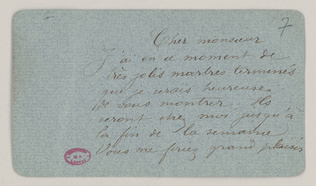 7
Cher monsieur
J'ai en ce moment de
très jolis martres terminés
que je serais heureuse
de vous montrer. Ils
seront chez moi jusqu'à
la fin de la semaine
Vous me feriez grand plaisir